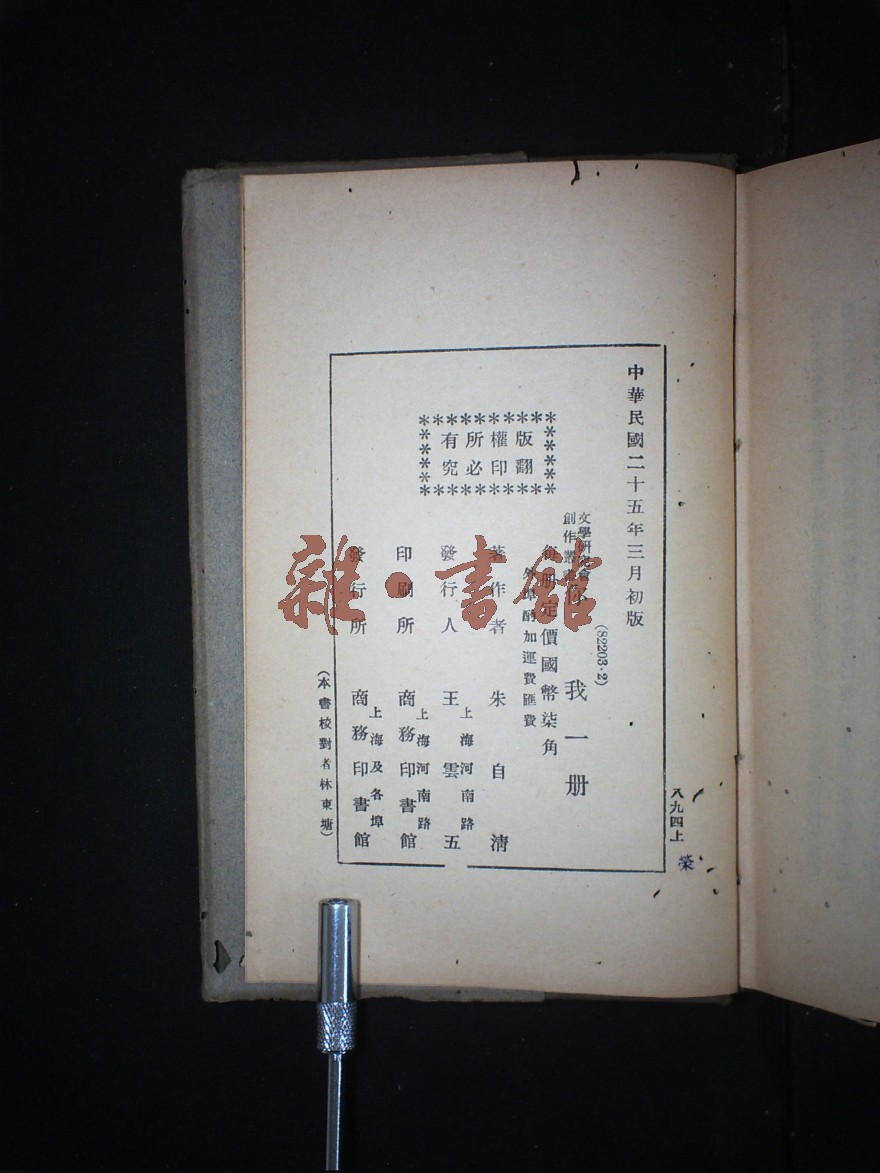 中華民國二十五年三月初版
(82203·2)
文學研究會
創作叢書
你我一册
每册定價國幣柒角
外埠酌加運費匯費
版權所有
翻印必究
著作者 朱自清
發行人 王雲五
上海河南路
印刷所 商務印書館
上海河南路
發行所 商務印書館
上海及各埠
(本書校對者林東塘)
八九四上
榮
雜·書館